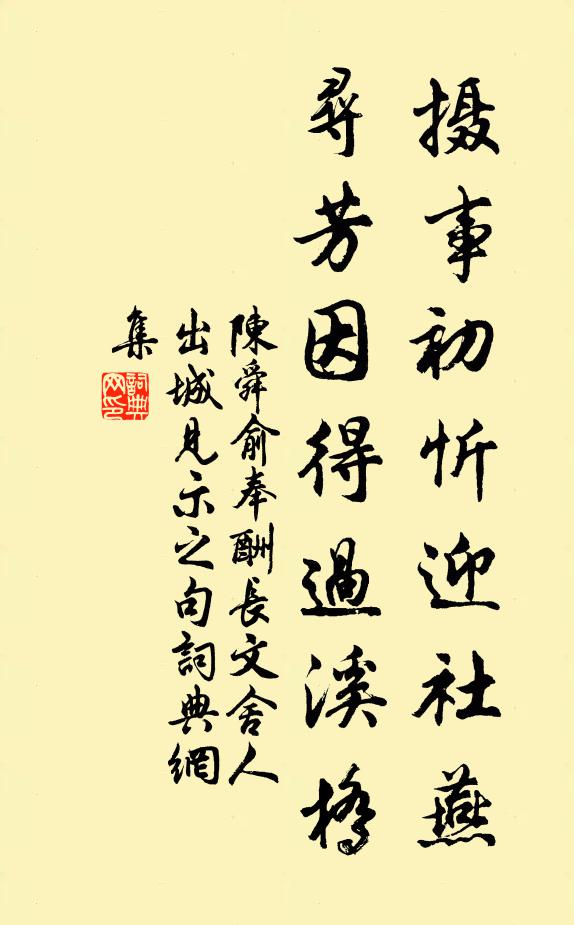 摄事初忻迎社燕
尋芳因得過溪橋
陳舜俞奉酬長文舍人
出城見示之句詞典網
集
詞典
网印